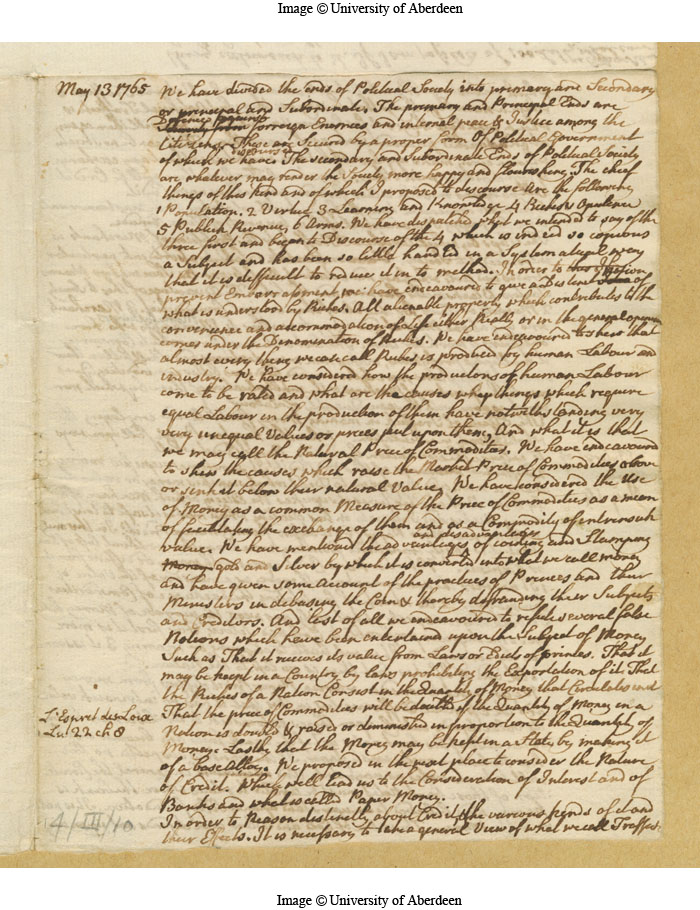 Image © University of Aberdeen
May 13 1765
We have divided the ends of Political Society into primary and Secondary
or principal and Subordinate. The primary and Principal Ends are
Defence against
Security from forreign Enemies and internal peace & Justice among the
Citizens. These are Secured by a proper form Of Political Government
discoursed
of which we have The secondary and Subordinate Ends of Political Society
are whatever may render the Society more happy and flourishing. The chief
things of this kind and of which I proposed to discourse Are the following
1 Population. 2 Virtue 3 Learning and Knowledge 4 Riches Opulence
5 Publick Revenue, 6 Arms. We have dispatched what we intended to say of the
three first and began to Discourse of the 4 which is indeed so copious
a Subject and has been so little handled in a Systematical way
that it is difficult to reduce it into method. In order to
prevent Embarrasment we have endeavoured to give a Distinct of
what is understood by Riches. All alienable property which contributes to the
convenience and accommodation of life either Really or in the general opinion
comes under the Denomination of Riches. We have endeavoured to shew that
almost every thing we can call Riches is produced by human Labour and
industry. We have considered how the productions of human Labour
come to be rated and what are the causes why things which require
equal Labour in the production of them have notwithstanding very
very unequal Values or prices put upon them, And what it is that
we may call the Natural Price of Commodities. We have endeavourd
to shew the causes which raise the Market Price of Commodities above
or sink it below their natural Value. We have considered the Use
of Money as a common Measure of the Price of Commodities as a mean
of facilitating the exchange of them and as a Commodity of
and disadvantages
value. We have mentiond the advantages of coining and Stamping
Money gold and Silver by which it is converted into what we call money
and have given some Account of the practices of Princes and their
Ministers in debasing the Coin & thereby defrauding their Subjects
and Creditors. And last of all we endeavoured to refute several false
Notions which have been entertained upon the Subject of Money
Such as That it receives its value from Laws or Edicts of princes. That it
may be kept in a Country by laws prohibiting the Exportation of it That
the Riches of a Nation Consist in the Quantity of Money that Circulates in it
That the price of Commodities will be doubled if the Quantity of Money in a
Nation is doubled & raised or diminished in proportion to the Quantity of
Money. Lastly that the Money may be kept in a State by making it
of a base Alloy. We proposed in the next place to consider the Nature
of Credit. Which will lead us to the Consideration of Interest and of
Banks and what is called Paper Money.
In order to Reason distinctly about Credit & the various kinds of it and
their Effects. It is necessary to take a general View of what we call Traffick
L'Esprit des Loix
Liv 22 ch 8
4/III/10
Image © University of Aberdeen